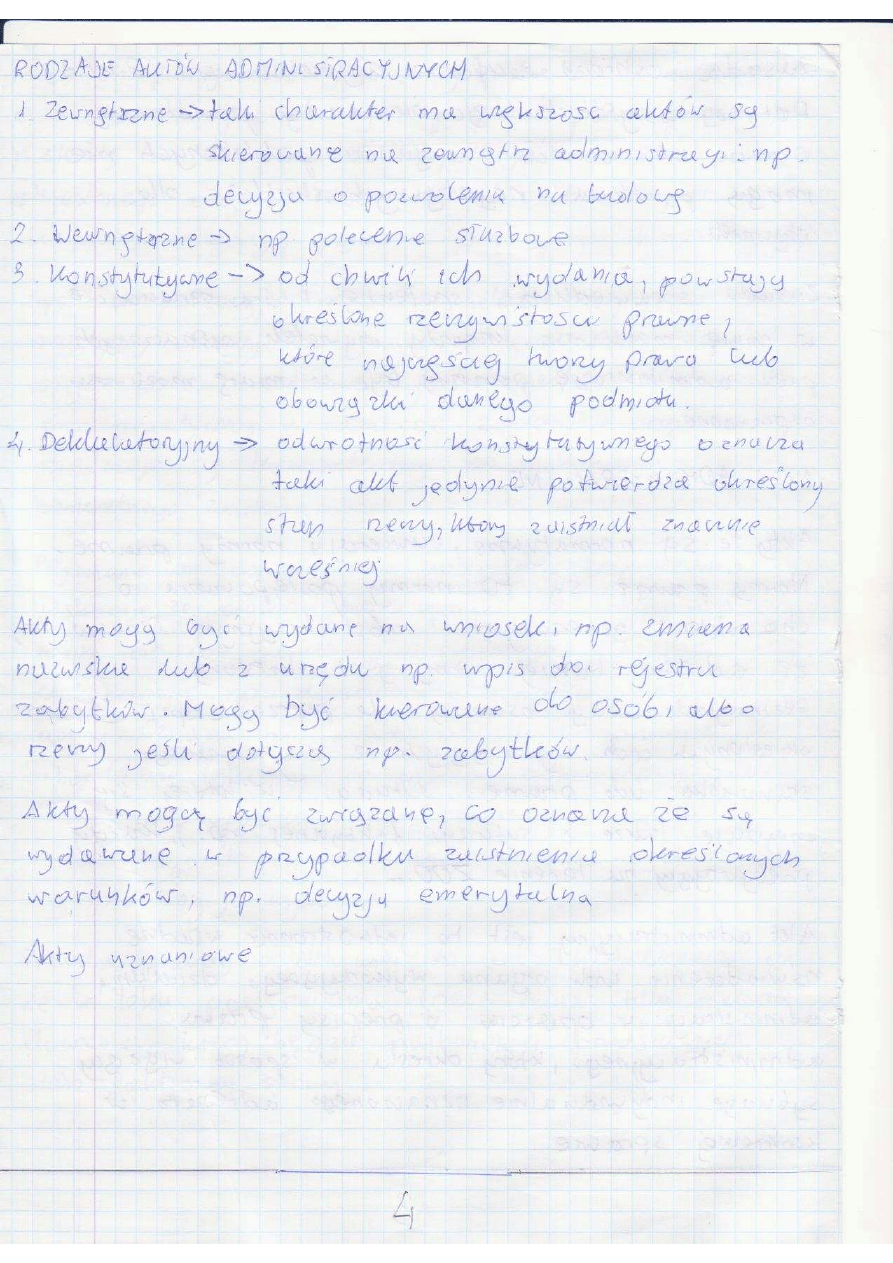 RODZAJE AKTÓW ADMINISTRACYJNYCH
1. Zewnętrzne -> taki charakter ma większość aktów są
skierowane na zewnątrz administracyi: np.
decyzja o pozwoleniu na budowę
2. Wewnętrzne -> np polecenie służbowe
3. Konstytutywne -> od chwili ich wydania, powstają
określone rzeczywistości prawne,
które najczęściej tworzy prawa lub
obowiązki danego podmiotu.
4. Deklaratoryjny -> odwrotność konstytutywnego oznacza
taki akt jedynie potwierdza określony
stan rzeczy, który zaistniał znacznie
wcześniej
Akty mogą być wydane na wniosek, np. zmiana
nazwiska lub z urzędu np. wpis do rejestru
zabytków. Mogą być kierowane do osób, albo
rzeczy jeśli dotyczą np. zabytków.
Akty mogą być związane, co oznacza że są
wydawane w przypadku zaistnienia określonych
warunków, np. decyzja emerytalna
Akty uznaniowe
4